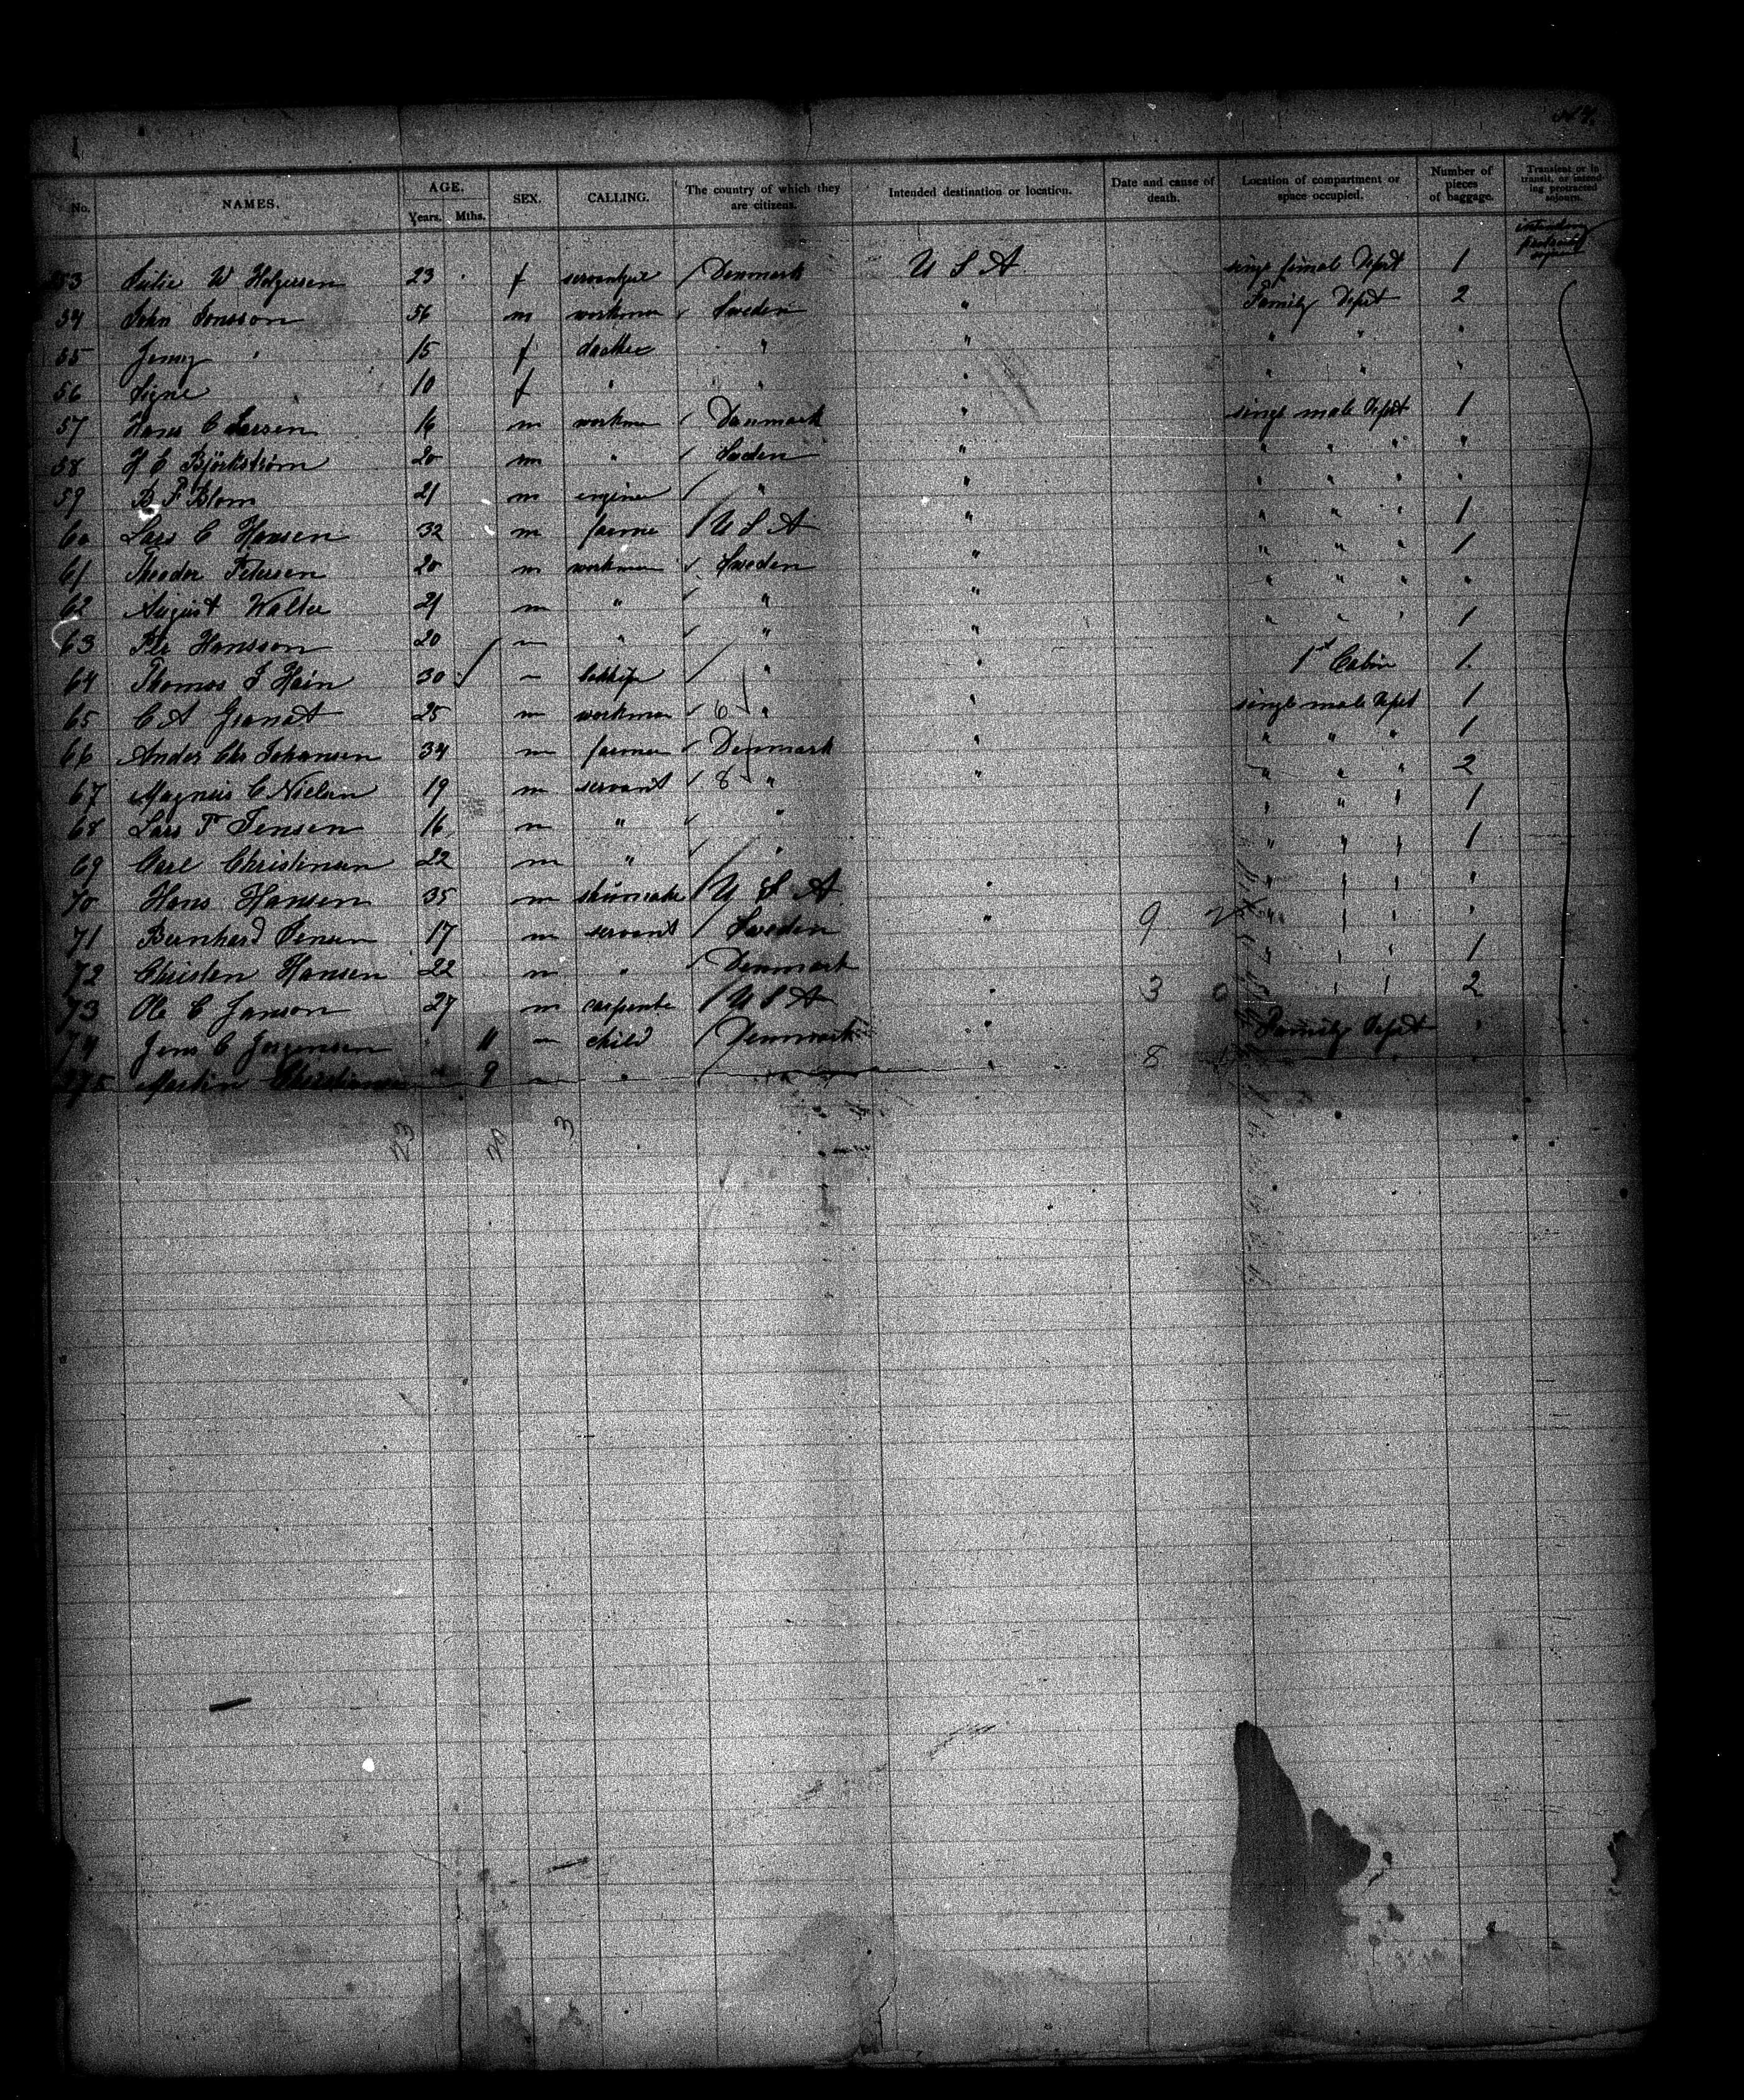 No. NAMES. AGE. Years. Mths. SEX. CALLING. The country of which they are citizens. Intended destination or location. Date and cause of death. Location of compartment or space occupied. Number of pieces of baggage. Transient or in transit, or intending protracted sojourn.
intending protracted sojourn
53 Julie W Holgersen 23 f servantgirl Denmark U S A 1
54 John Jonsson 56 m workman Sweden " Family Dept 2
55 Jenny " 15 f " " " " "
56 Signe " 10 f " " " " " "
57 Hans C Larsen 16 m workman Denmark " single male Dept 1
58 H C Björkström 20 m " " " " " "
59 B F Blom 21 m " " " " " "
60 Lars C Hansen 32 m farmer U S A " " " " 1
61 Theodor Petersen 20 m workman Sweden " " " " 1
62 August Walter 21 m " " " " " " "
63 Per Hansson 20 m " " " " " " 1
64 Thomas J Hein 30 " " " 1st Cabin 1
65 C A Granat 25 m workman 6 " " single male Dept 1
66 Anders Chr Johansen 34 m farmer Denmark " " " " 1
67 Magnus C Nielsen 19 m servant 8 " " " " " 2
68 Lars P Jensen 16 m " " " " " 1
69 Carl Christensen 22 m " " " " " 1
70 Hans Hansen 35 m U S A " " " " "
71 Bernhard Jensen 17 m servant Sweden " 9 " " " "
72 Christen Hansen 22 m " Denmark " " " 1
73 Ole C Janson 27 m carpenter U S A " 3 0 " " " 2
74 Jens C Jorgensen 11 child Denmark " Family Dept "
275 Martin Christiansen 9 " " 8 "
23 20 3